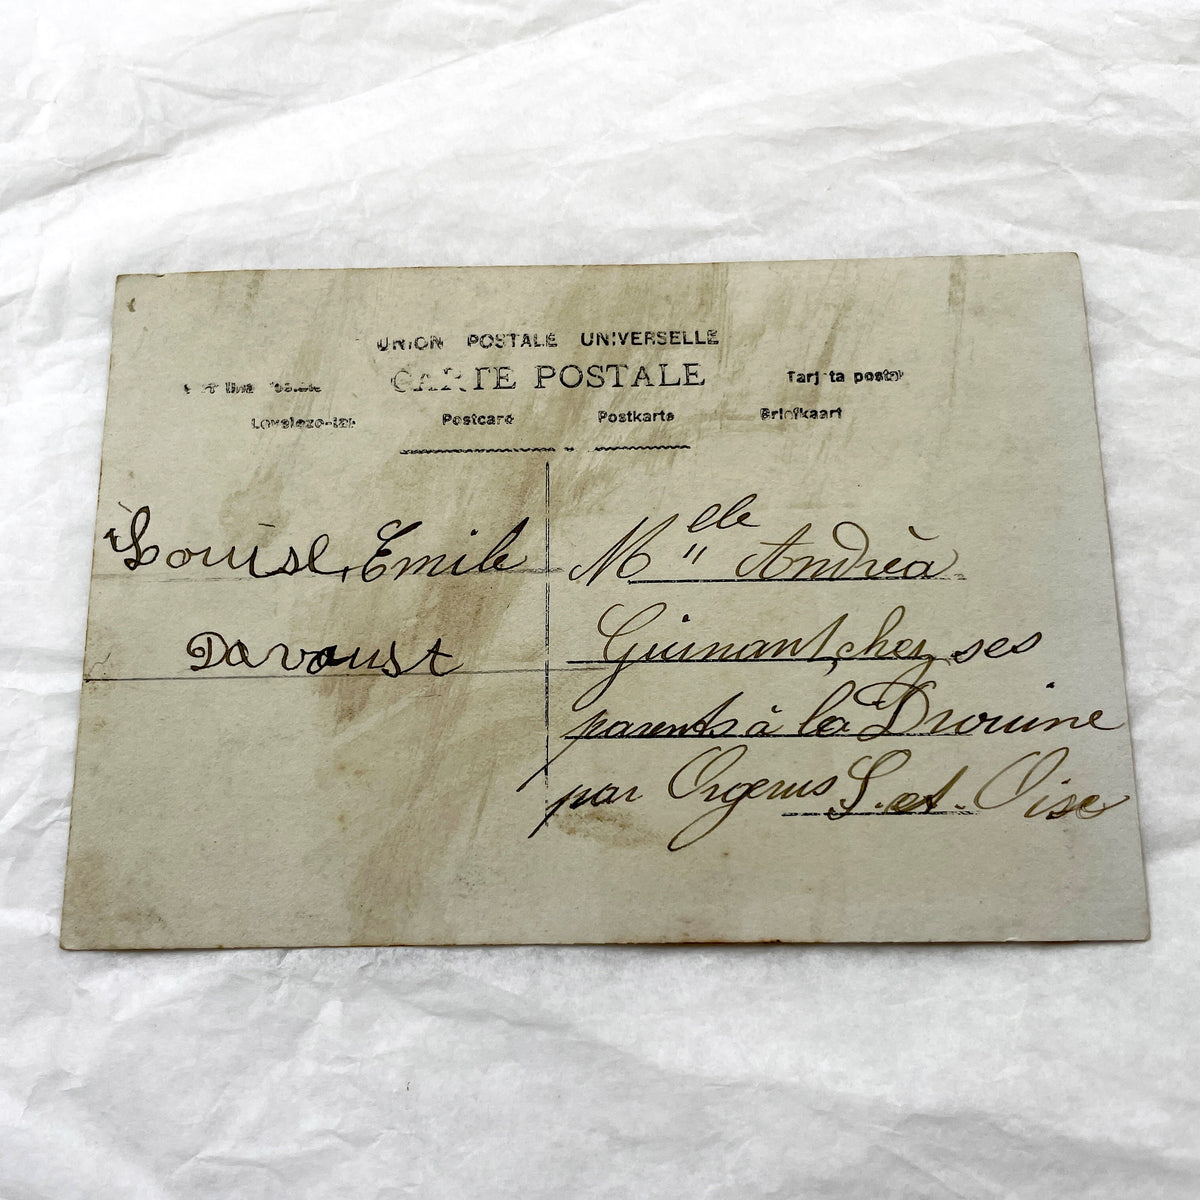 UNION POSTALE UNIVERSELLE
CARTE POSTALE
Tarjeta postal
Postcard Postkarte Briefkaart
Louise, Emile
Davoust
Melle Andrèa
Guinant, chez ses
parents à la Drouine
par Orgerus S. et. Oise